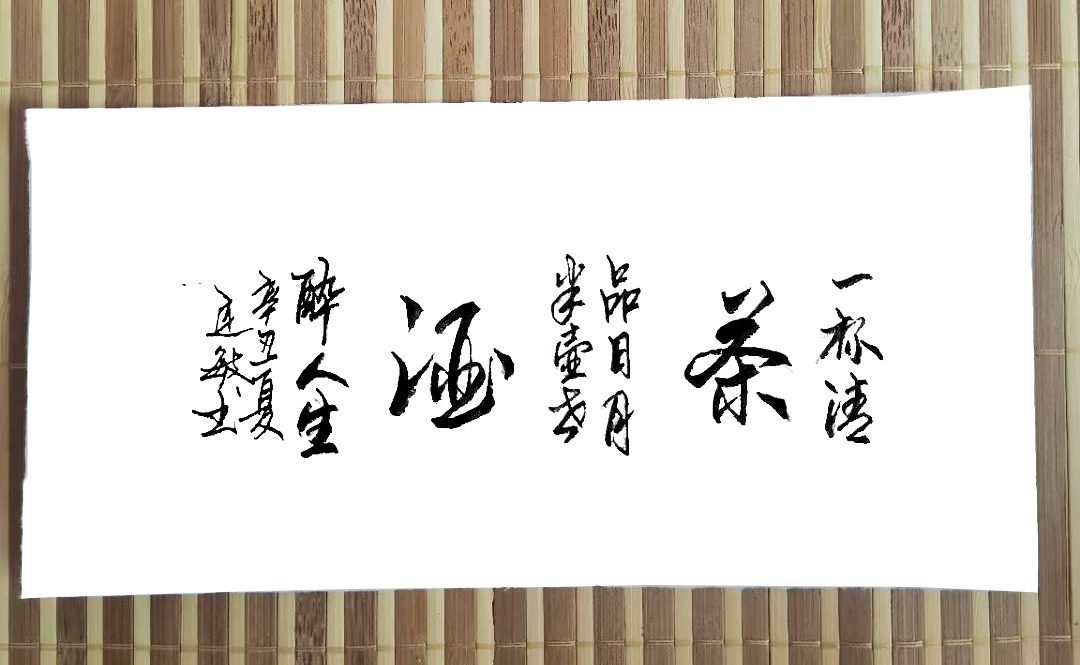 一杯清
茶
品日月
半壶老
酒
醉人生
辛丑夏
敏书